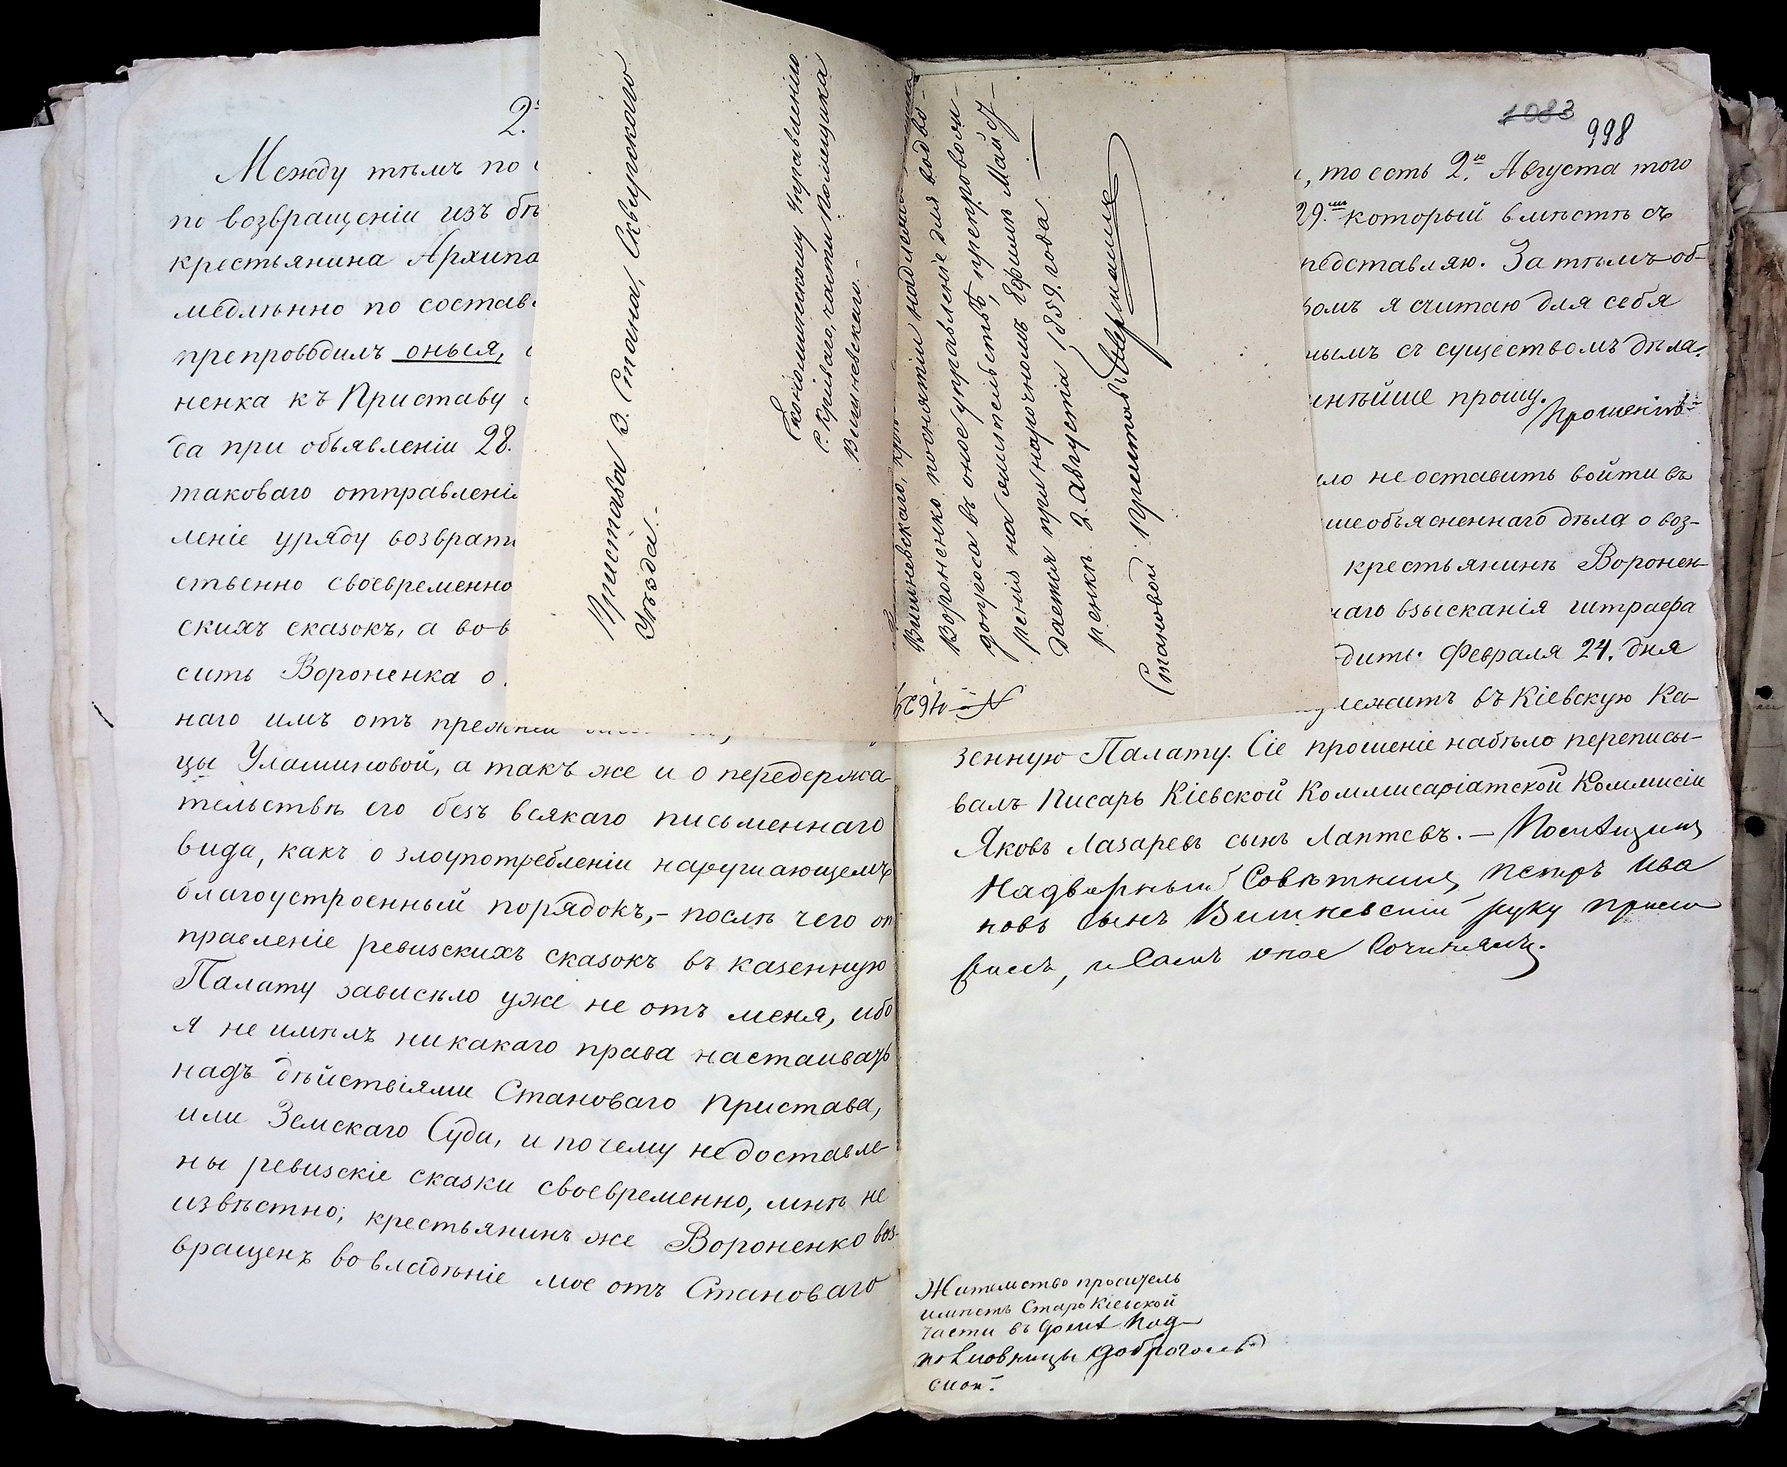 2.
Между тѣмъ по
по возвращеніи изъ бѣ
крестьянина Архипа
медлѣнно по состав
препроводилъ оныя,
ненка къ Приставу
да при объявленіи 28.
таковаго отправлені
леніе уряду возврати
ственно своевременно
скихъ сказокъ, а вов
сить Вороненка о
наго имъ отъ прежней
цы Улашиновой, а такъ же и о передержа
тельствѣ его безъ всякаго письменнаго
вида, какъ о злоупотребленіи нарушающемъ
благоустроенный порядокъ,- послѣ чего от
правленіе ревизскихъ сказокъ въ казенную
Палату зависѣло уже не отъ меня, ибо
я не имѣлъ никакаго права настаивать
надъ дѣйствіями Становаго Пристава,
или Земскаго Суда, и почему недоставле
ны ревизскіе сказки своевременно, мнѣ не
извѣстно; крестьянинъ же Вороненко воз-
вращенъ вовладѣніе мое отъ Становаго
Пристава 3. Стана, Сквирскаго
Уѣзда.-
Економическому Управленію
с. Криваго, части Помещика
Вишневскаго.-
Вишневскаго,
Вороненко поснятіи для водво-
допроса въ оное управленіе, препровож-
ренія на жительствѣ,
дается при нарочномъ Ефимѣ Майст-
ренкѣ 2. Августа 1859. года —
Становой Приставъ
№ 4629
1083
998
, то есть 2.го Августа того
29.мъ который вмѣстѣ съ
редставляю. Затѣмъ об-
ромъ я считаю для себя
нымъ съ существомъ дѣла.
ннѣйше прошу.
Прошеніѣ
ло не оставить войти въ
шеобъясненнаго дѣла о воз-
крестьянинѣ Воронен-
наго взысканія штрафа
дить. Февраля 24. дня
лежитъ въ Кіевскую Ка-
зенную Палату. Сіе прошеніе набѣло переписы-
валъ Писарь Кіевской Коммисаріатской Коммисіи
Яковъ Лазаревъ сынъ Лаптевъ.— Помѣщикъ
Надворный Совѣтникъ Петръ Ива
новъ сынъ Вишневскій руку прило
жилъ, и самъ оное сочинялъ.
Жительство проситель
имѣетъ Старокіевской
части въ домѣ Под-
полковницы Доброголь
ской.